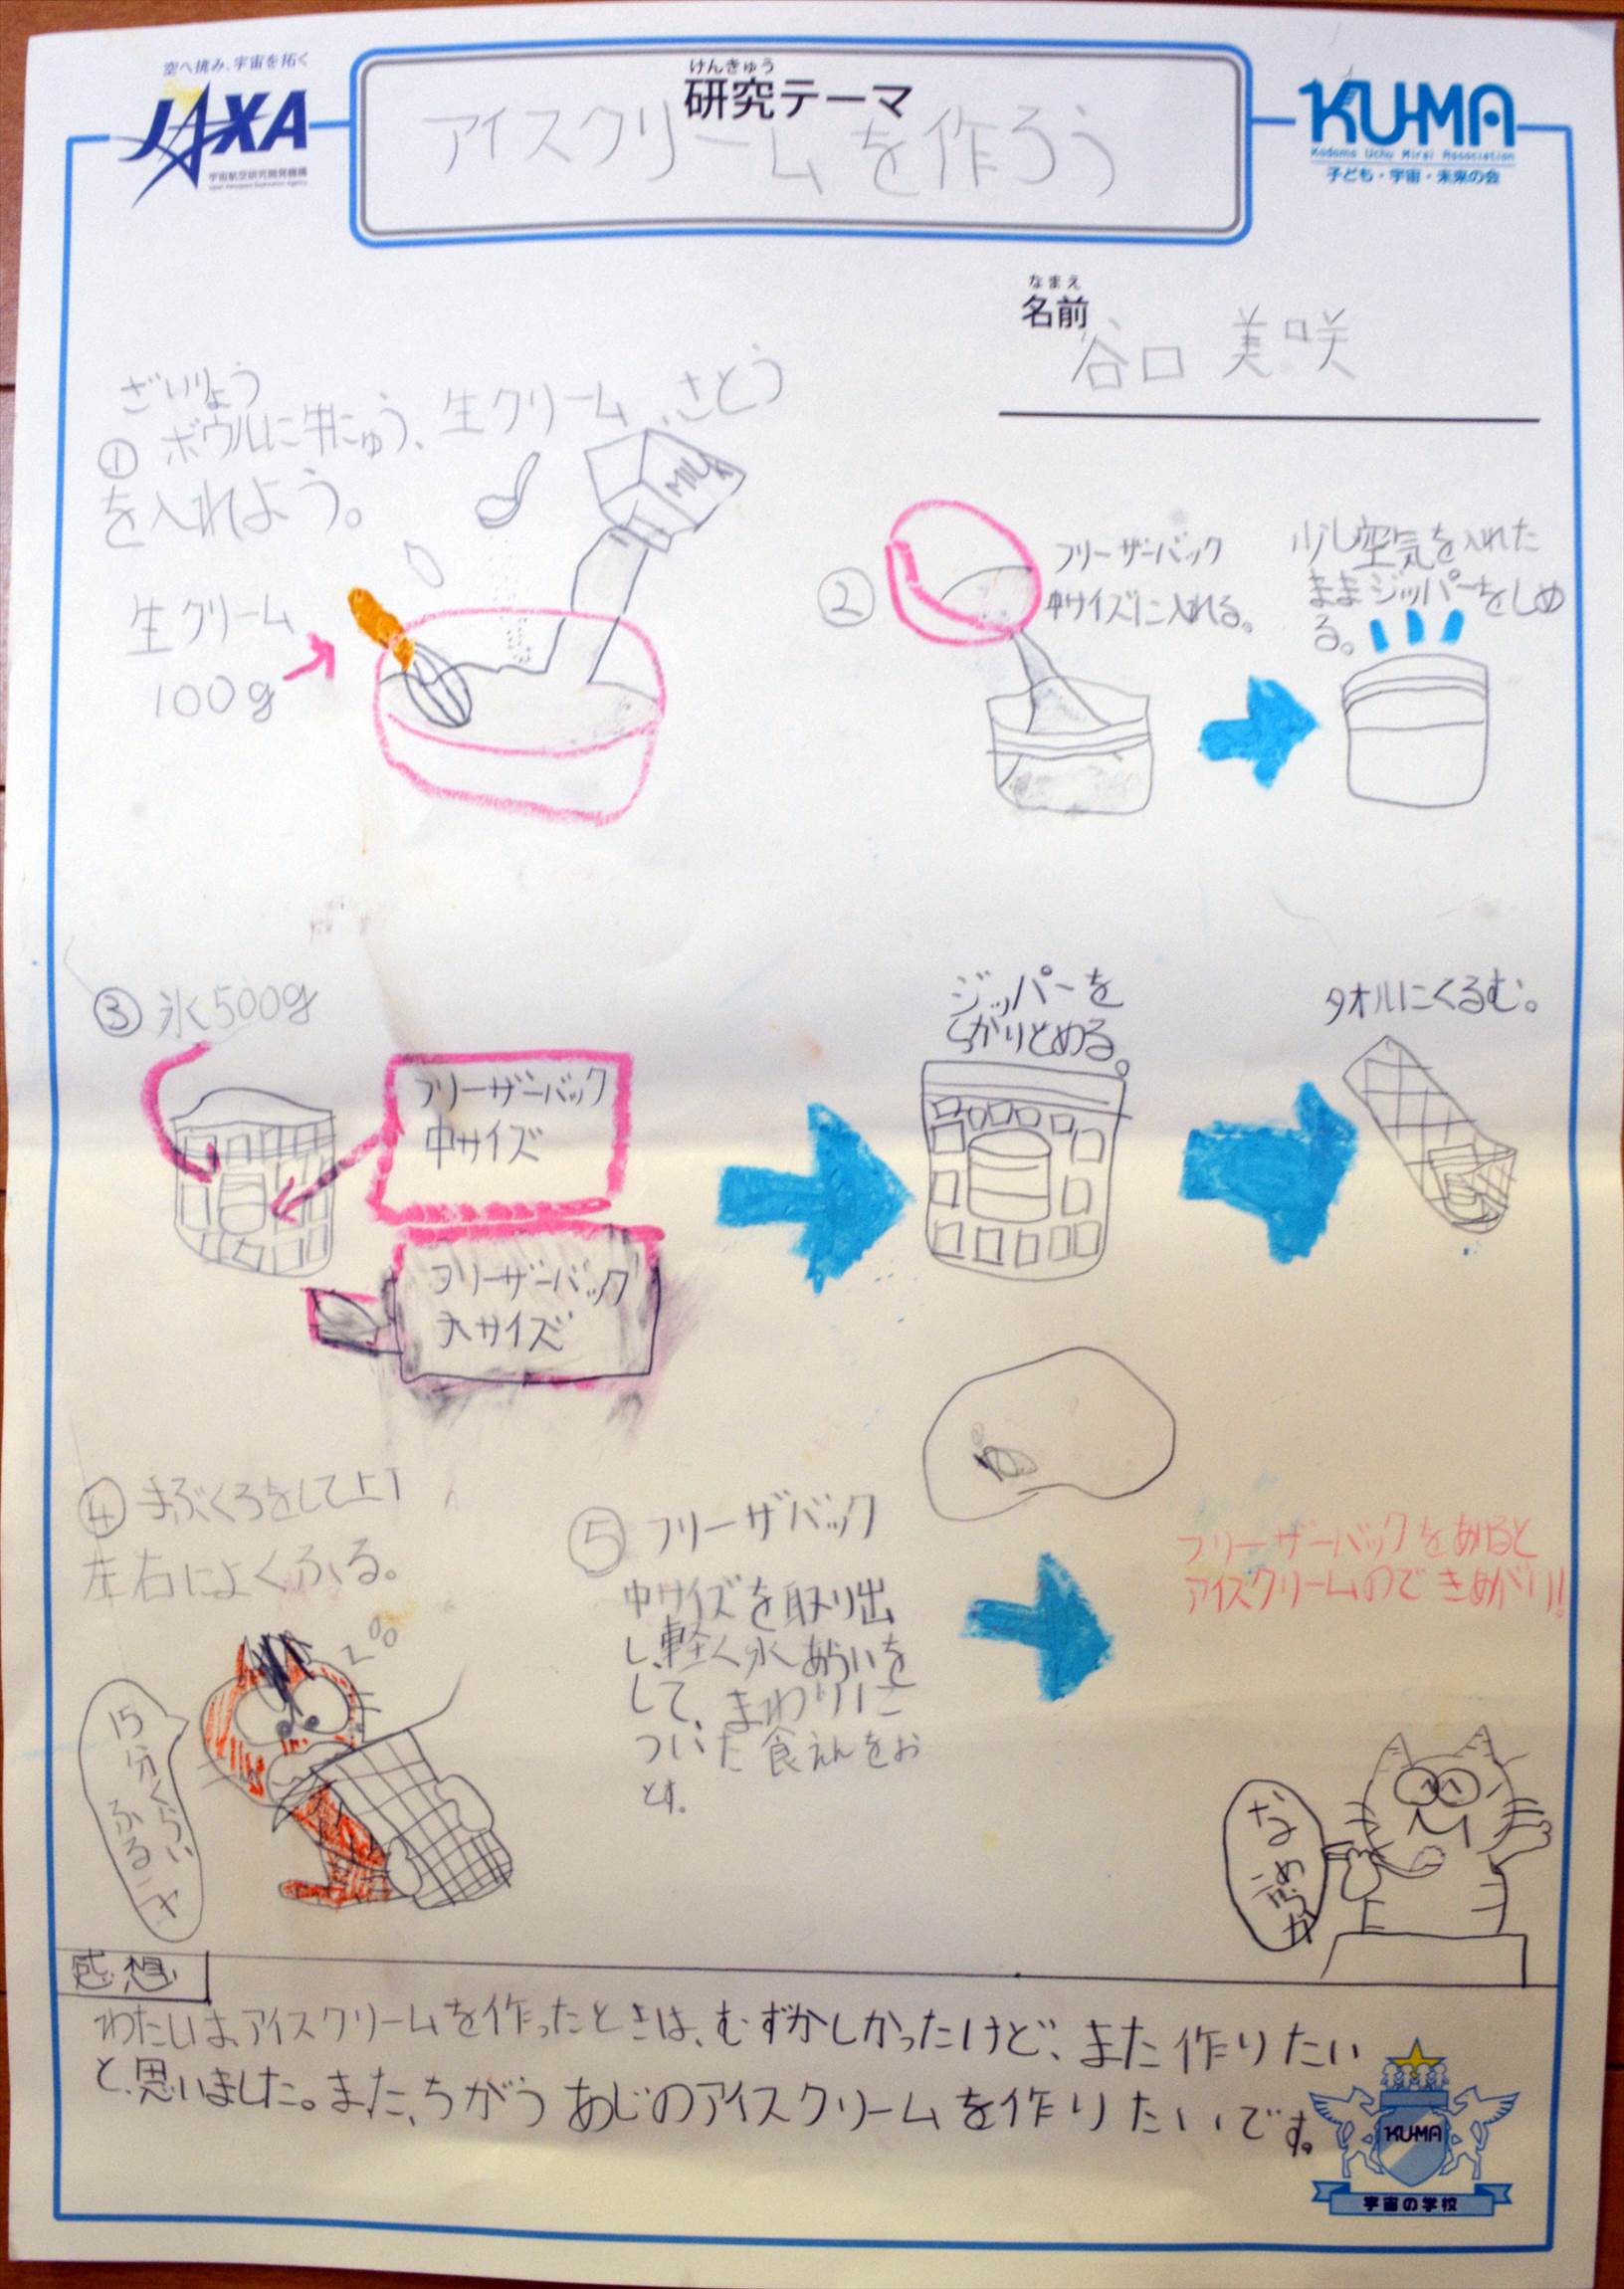 空へ挑み、宇宙を拓く
JAXA
宇宙航空研究開発機構
けんきゅう
研究テーマ
アイスクリームを作ろう
KU-MA
Kodomo Uchu Mirai Association
子ども・宇宙・未来の会
なまえ
名前
谷口 美咲
ざいりょう
① ボウルに牛にゅう、生クリーム、さとう
を入れよう。
MILK
生クリーム
100g
②
フリーザーバック
中サイズに入れる。
少し空気を入れた
ままジッパーをしめ
る。
③ 氷500g
フリーザーバック
中サイズ
フリーザーバック
大サイズ
ジッパーを
しっかりとめる。
タオルにくるむ。
④ 手ぶくろをして上下
左右によくふる。
15分くらい
ふるニャ
⑤ フリーザバック
中サイズを取り出
し、軽く水あらいを
して、まわりに
ついた食えんをお
とす。
フリーザーバックをあけると
アイスクリームのできあがり!
感想
わたしは、アイスクリームを作ったときは、むずかしかったけど、また作りたい
と思いました。また、ちがうあじのアイスクリームを作りたいです。
KU-MA
宇宙の学校